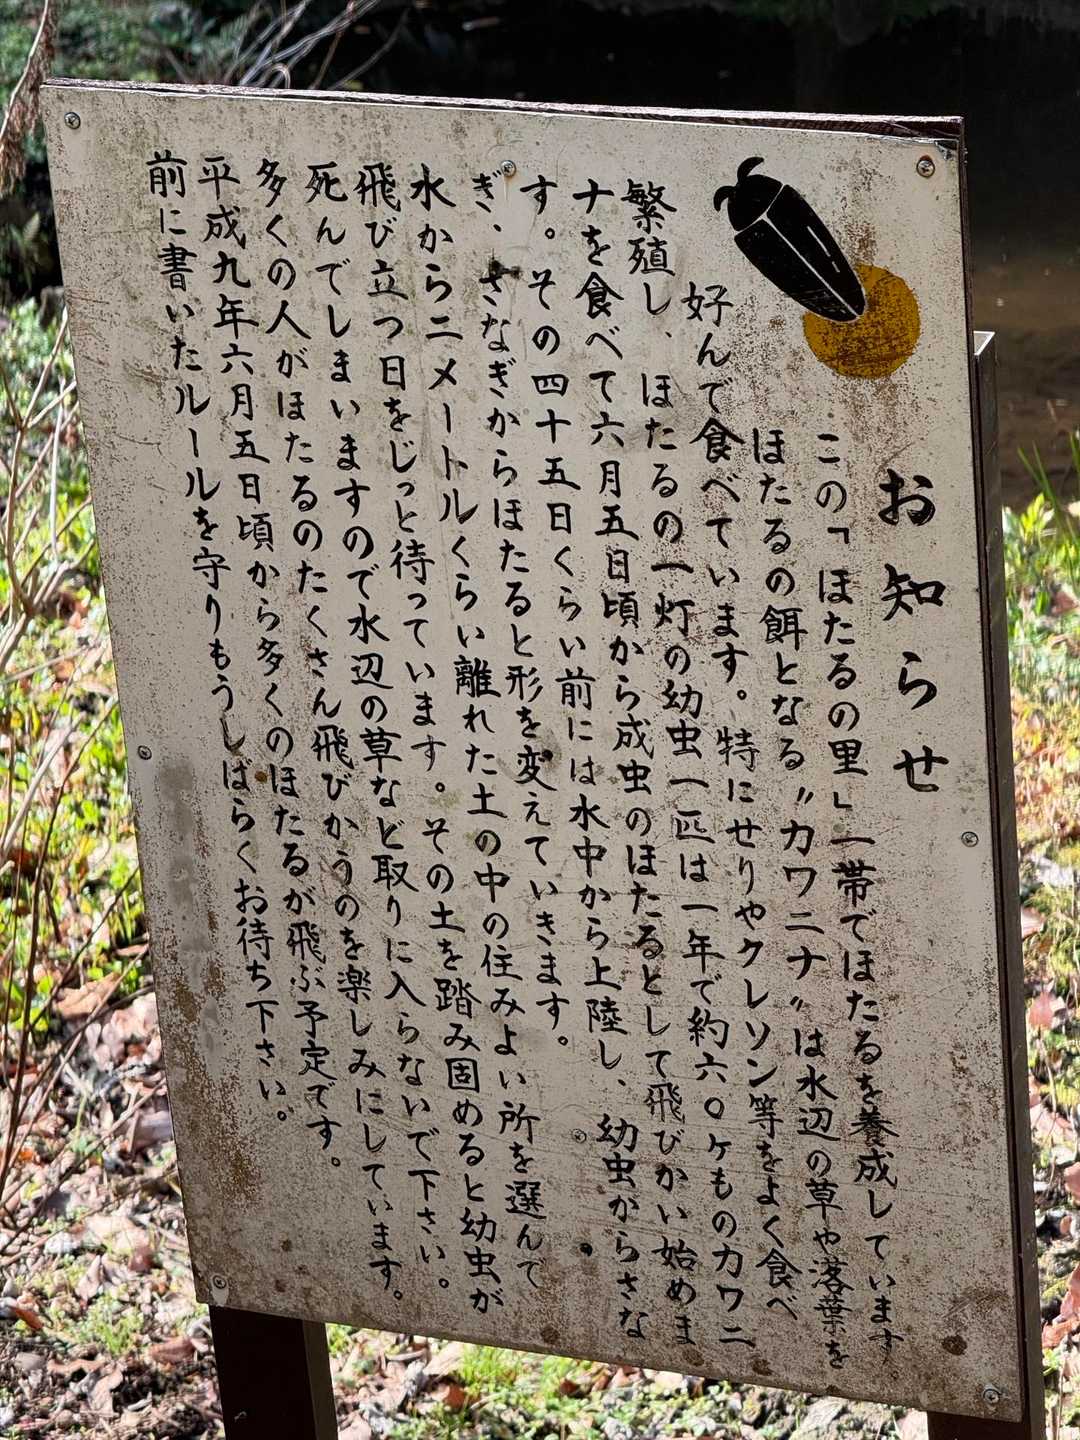 お知らせ
この「ほたるの里」一帯でほたるを養成しています。
ほたるの餌となる〝カワニナ〟は水辺の草や落葉を
好んで食べています。特にせりやクレソン等をよく食べ
繁殖し、ほたるの一灯の幼虫一匹は一年で約六〇ケものカワニ
ナを食べて六月五日頃から成虫のほたるとして飛びかい始めま
す。その四十五日くらい前には水中から上陸し、幼虫からさな
ぎ、さなぎからほたると形を変えていきます。
水から二メートルくらい離れた土の中の住みよい所を選んで
飛び立つ日をじっと待っています。その土を踏み固めると幼虫が
死んでしまいますので水辺の草など取りに入らないで下さい。
多くの人がほたるのたくさん飛びかうのを楽しみにしています。
平成九年六月五日頃から多くのほたるが飛ぶ予定です。
前に書いたルールを守りもうしばらくお待ち下さい。